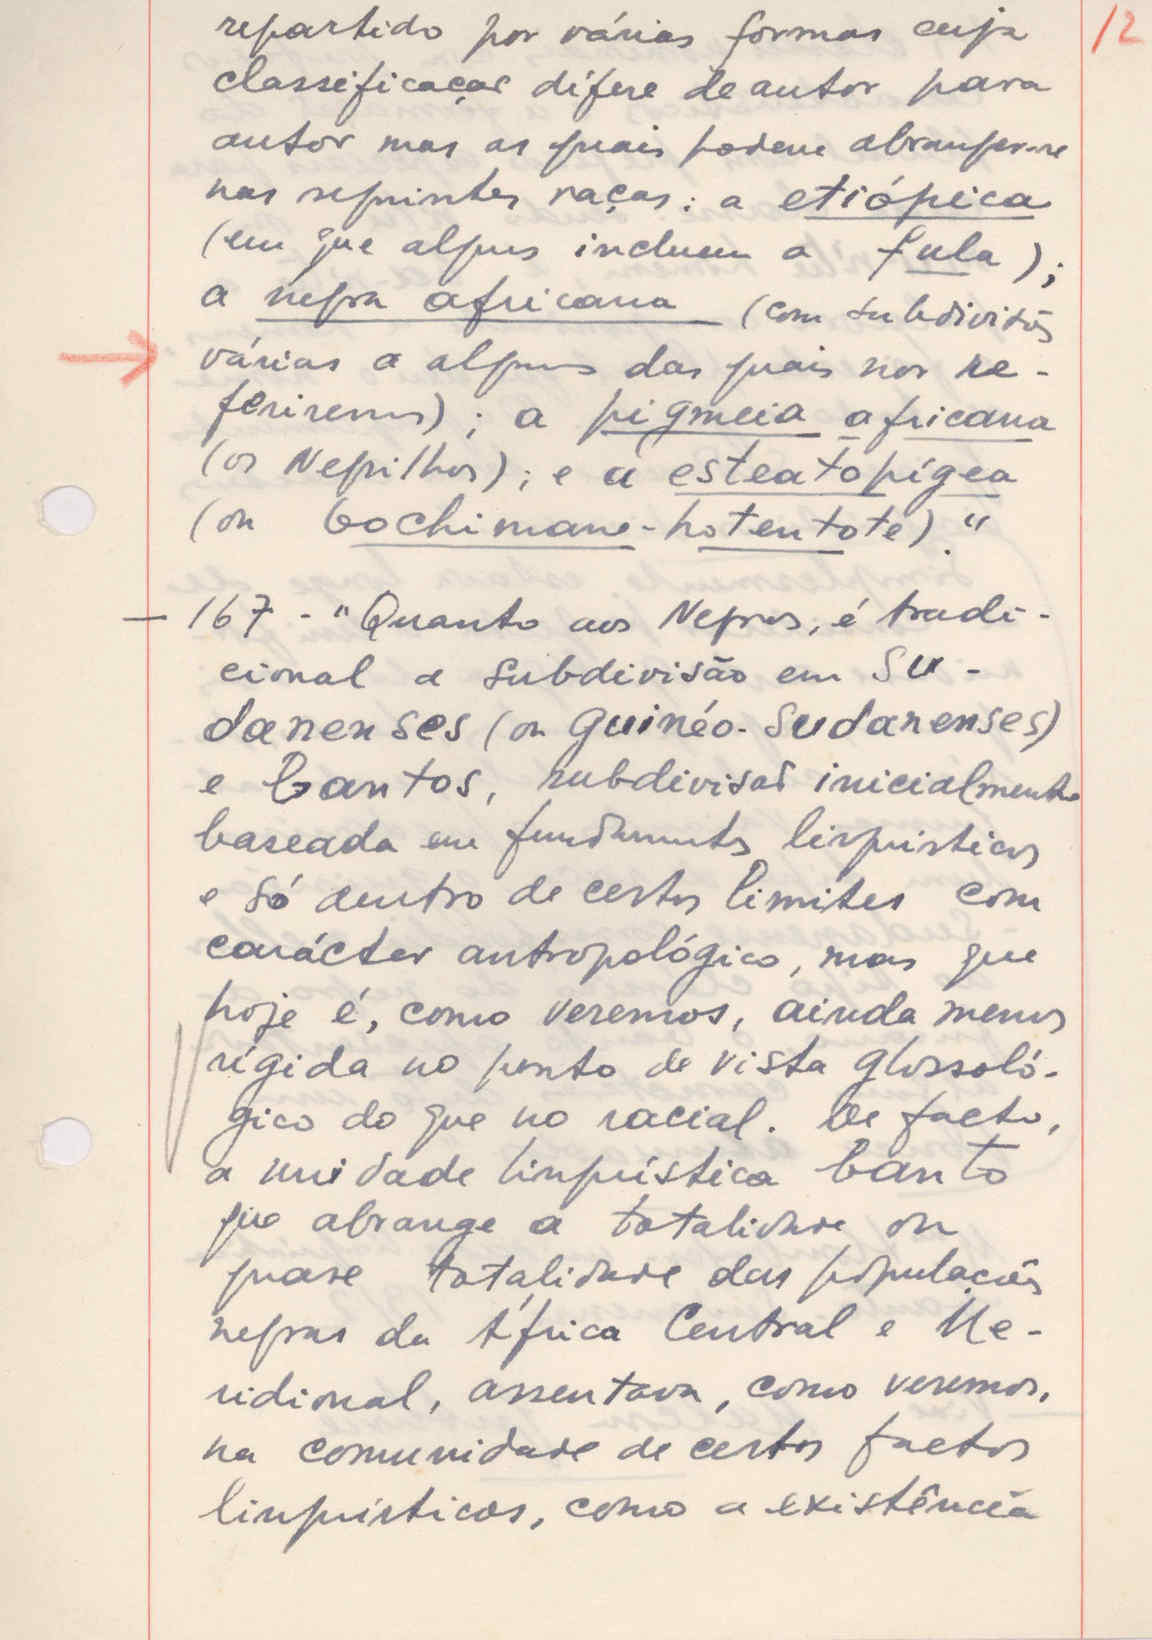 12
repartido por várias formas cuja
classificação difere de autor para
autor mas as quais podem abranger-se
nas seguintes raças: a etiópica
(em que alguns incluem a fula);
a negra africana (com subdivisões
várias a algumas das quais nos re-
feriremos); a pigmeia africana
(os Negrilhos); e a esteatopígea
(ou bochimane-hotentote)."
— 167 - "Quanto aos Negros, é tradi-
cional a subdivisão em Su-
daneses (ou Guinéo-Sudaneses)
e Bantos, subdivisão inicialmente
baseada em fundamentos linguísticos
e só dentro de certos limites com
carácter antropológico, mas que
hoje é, como veremos, ainda menos
rígida no ponto de vista glossoló-
gico do que no racial. De facto,
a unidade linguística banto
que abrange a totalidade ou
quase totalidade das populações
negras da África Central e Me-
ridional, assentava, como veremos,
na comunidade de certos factos
linguísticos, como a existência